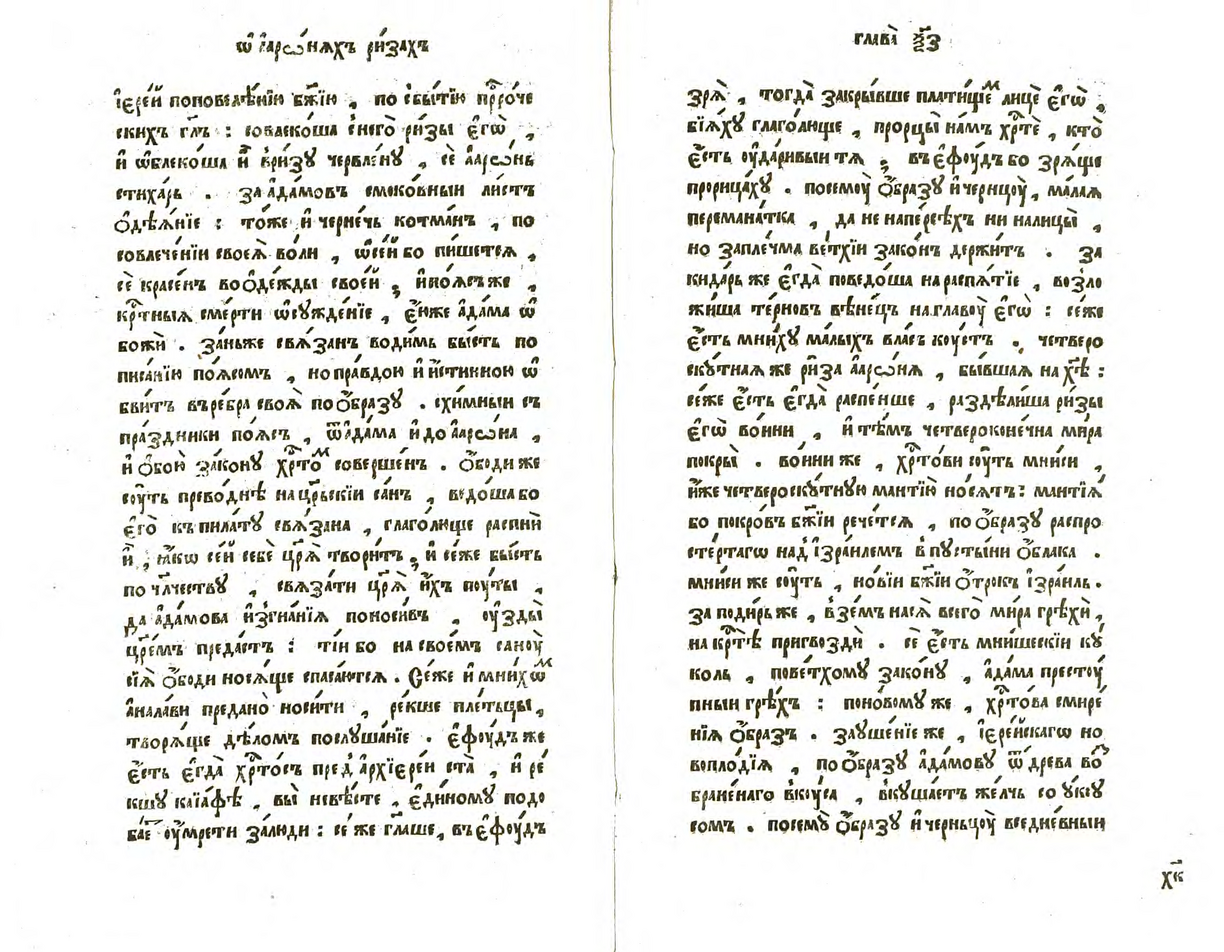 ѡ҃ а҆арѡ́нѧхъ ри́захъ
і҆ере́й поповелѣ́нїю бж҃їю , по сбытїю прⷪ҇рче
скихъ гл҃ъ : совлеко́ша с него̀ ри́зы є҆гѡ̀ ,
и҆ ѡ҆блеко́ша и҆̀ в ри́зꙋ червле́нꙋ , сѐ а҆арѡ́нь
стиха́рь . за а҆да́мовъ смоко́вныи ли́стъ
ѻ҆дѣѧ́нїе : то́же и҆ черне́чь котма́нъ , по
совлече́нїи своеѧ̀ во́ли , ѡ҆ се́й бо пи́шетсѧ ,
сѐ красе́нъ во ѻ҆де́жды свое́й ; и҆ по́ѧсъ же ,
крⷭ҇тныѧ сме́рти ѡ҆сꙋжде́нїе , є҆́ю́же а҆да́ма ѡ҆
божѝ . за́ньже свѧ́занъ води́мь бы́сть по
писа́нїю по́ѧсомъ , но пра́вдою и҆ и҆́стинною ѡ҆
бви́тъ въ ре́бра своѧ̀ по ѻ҆́бразꙋ . схи́мныи съ
пра́здники по́ѧсъ , ѿ а҆да́ма и҆ до а҆арѡ́на ,
и҆ ѻ҆бою̀ зако́нꙋ хрⷭ҇то́мъ соверше́нъ . ѻ҆́боди же
сꙋ́ть преводнѣ̀ на црⷭ҇ьскїи са́нъ , ведо́ша бо
є҆го̀ къ пила́тꙋ свѧ́зана , глаго́люще распнѝ
и҆̀ , ꙗ҆́кѡ се́й себѐ цр҃ѧ̀ твори́тъ ; и҆ се́же бы́сть
по чл҃честву , свѧза́ти цр҃ѧ̀ и҆́хъ пꙋ́ты ,
да а҆да́мова и҆згна́нїѧ поноси́въ , ᲂу҆зды̀
цр҃е́мъ преда́стъ : ті́и бо на свое́мъ санꙋ̀
сїѧ̀ ѻ҆́боди носѧ́ще спаса́ютсѧ . Се́же и҆ мни́хѡмъ
а҆нала́ви пре́дано носи́ти , ре́кше плетцы̀ ,
творѧ́ще дѣ́ломъ послꙋша́нїе . є҆фꙋ́дъ же
є҆́сть є҆гда̀ хрⷭ҇то́съ пред̾ а҆рхїере́и ста̀ , и҆ ре́
кшꙋ каїа́фѣ , вы̀ невѣ́сте , є҆ди́номꙋ подо
ба́е ᲂу҆мре́ти за лю́ди : се́ же гл҃аше , въ є҆фꙋ́дъ
глава̀ х҃з
зрѧ̀ , тогда̀ закры́вше плати́щемъ лицѐ є҆гѡ̀ ,
бїѧ́хꙋ глаго́люще , прорцы̀ на́мъ хрⷭ҇тѐ , кто̀
є҆́сть ᲂу҆да́ривыи тѧ ; въ є҆фꙋ́дъ бо зрѧ́ще
прорица́хꙋ . по семꙋ̀ ѻ҆́бразꙋ и҆ чернцꙋ̀ , ма́лаѧ
перемана́тка , да не на пе́рсѣхъ ни на лицы̀ ,
но за плечма̀ ве́тхїи зако́нъ держи́тъ . за
кида́рь же є҆гда̀ поведо́ша на распѧ́тїе , возло
жи́ша те́рновъ вѣне́цъ на главꙋ̀ є҆гѡ̀ : се́же
є҆́сть мни́хꙋ ма́лыхъ вла́съ кꙋ́стъ . четверо
скꙋ́тнаѧ же ри́за а҆арѡ́нѧ , бы́вшаѧ на хⷭ҇ѣ :
се́же є҆́сть є҆гда̀ распе́нше , раздѣли́ша ри́зы
є҆гѡ̀ во́ини , и҆ тѣ́мъ четвероконе́чна ми́ра
покры̀ . во́ини же , хрⷭ҇то́ви сꙋ́ть мни́си ,
и҆́же четвероскꙋ́тнꙋю манті́ю но́сѧтъ : манті́ѧ
бо покро́въ бж҃їи рече́тсѧ , по ѻ҆́бразꙋ распро
сте́ртагѡ над̾ і҆зра́илемъ в пꙋсты́ни ѻ҆́блака .
мни́си же сꙋ́ть , но́вїи бж҃їи ѻ҆́трокъ і҆зра́иль .
за поди́рь же , взе́мъ на сѧ̀ всего̀ ми́ра грѣхѝ ,
на крⷭ҇тѣ̀ пригвоздѝ . сѐ є҆́сть мни́шескїи кꙋ́
коль , по ве́тхомꙋ зако́нꙋ , а҆да́ма престꙋ́
пныи грѣ́хъ : по но́вомꙋ же , хрⷭ҇то́ва смире́
нїѧ ѻ҆́бразъ . заꙋше́нїе же , і҆ере́искагѡ но
воплоді́ѧ , по ѻ҆́бразꙋ а҆да́мовꙋ ѿ дре́ва во
бране́наго вкꙋ́са , вкꙋша́етъ же́лчь со ѹ҆кꙋ́
сомъ . по семꙋ̀ ѻ҆́бразꙋ и҆ черньцꙋ̀ вседне́вныи
хк҃